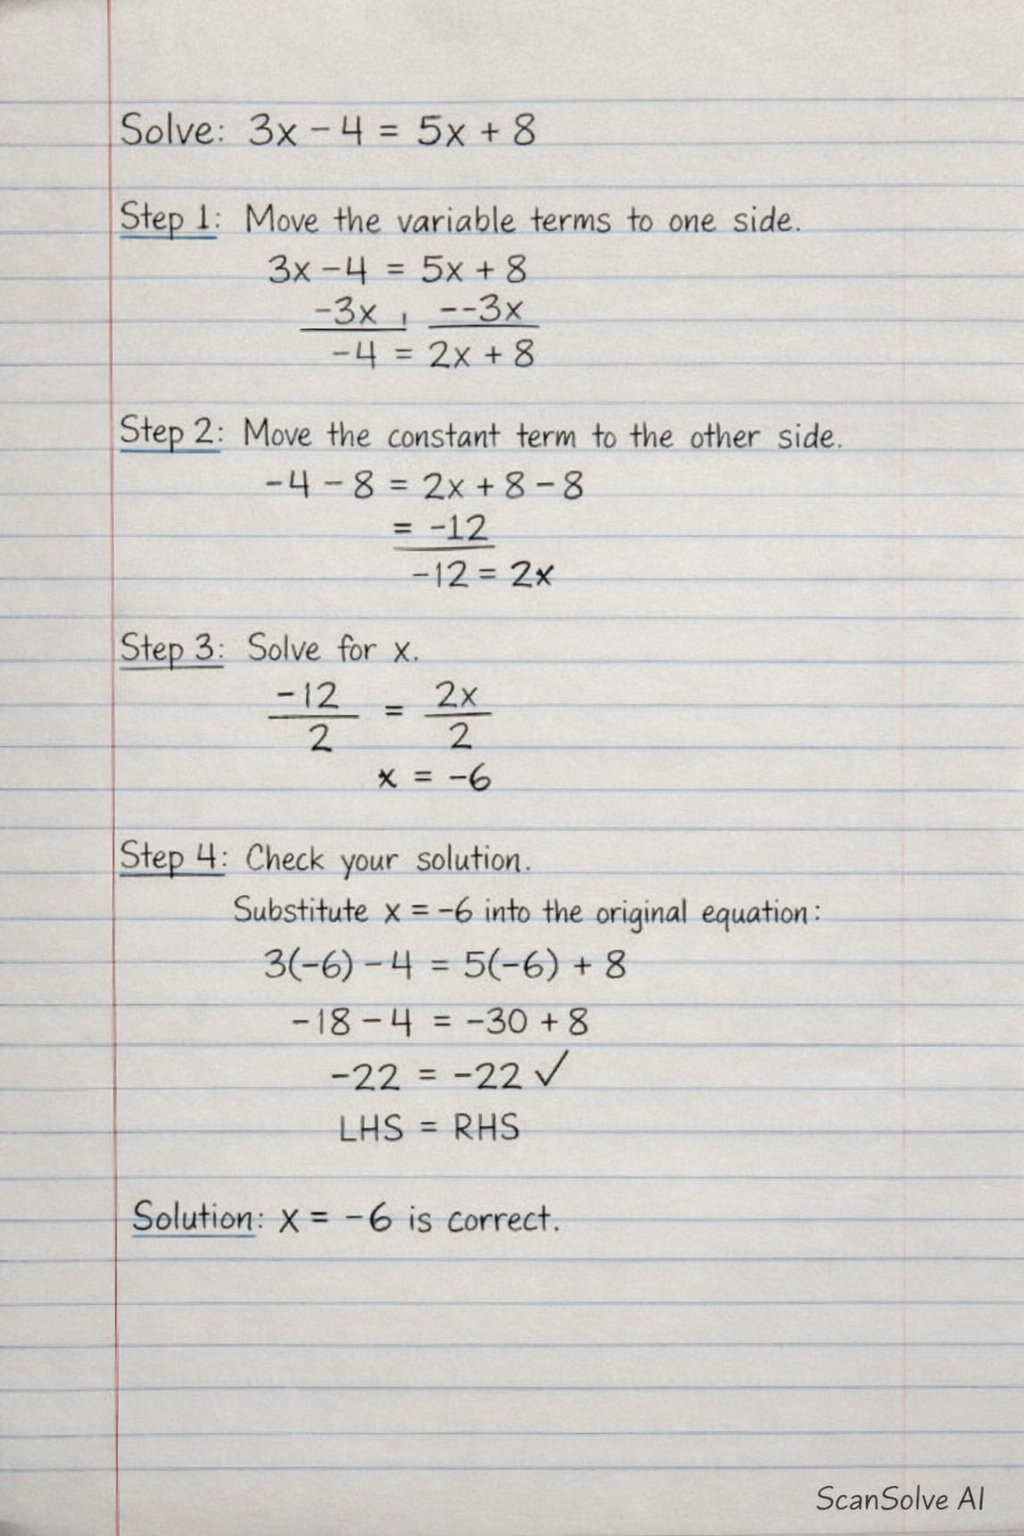 Solve: 3x - 4 = 5x + 8
Step 1: Move the variable terms to one side.
3x - 4 = 5x + 8
-3x , --3x
-4 = 2x + 8
Step 2: Move the constant term to the other side.
-4 - 8 = 2x + 8 - 8
= -12
-12 = 2x
Step 3: Solve for x.
-12 = 2x
2 2
x = -6
Step 4: Check your solution.
Substitute x = -6 into the original equation:
3(-6) - 4 = 5(-6) + 8
-18 - 4 = -30 + 8
-22 = -22 ✓
LHS = RHS
Solution: x = -6 is correct.
ScanSolve AI